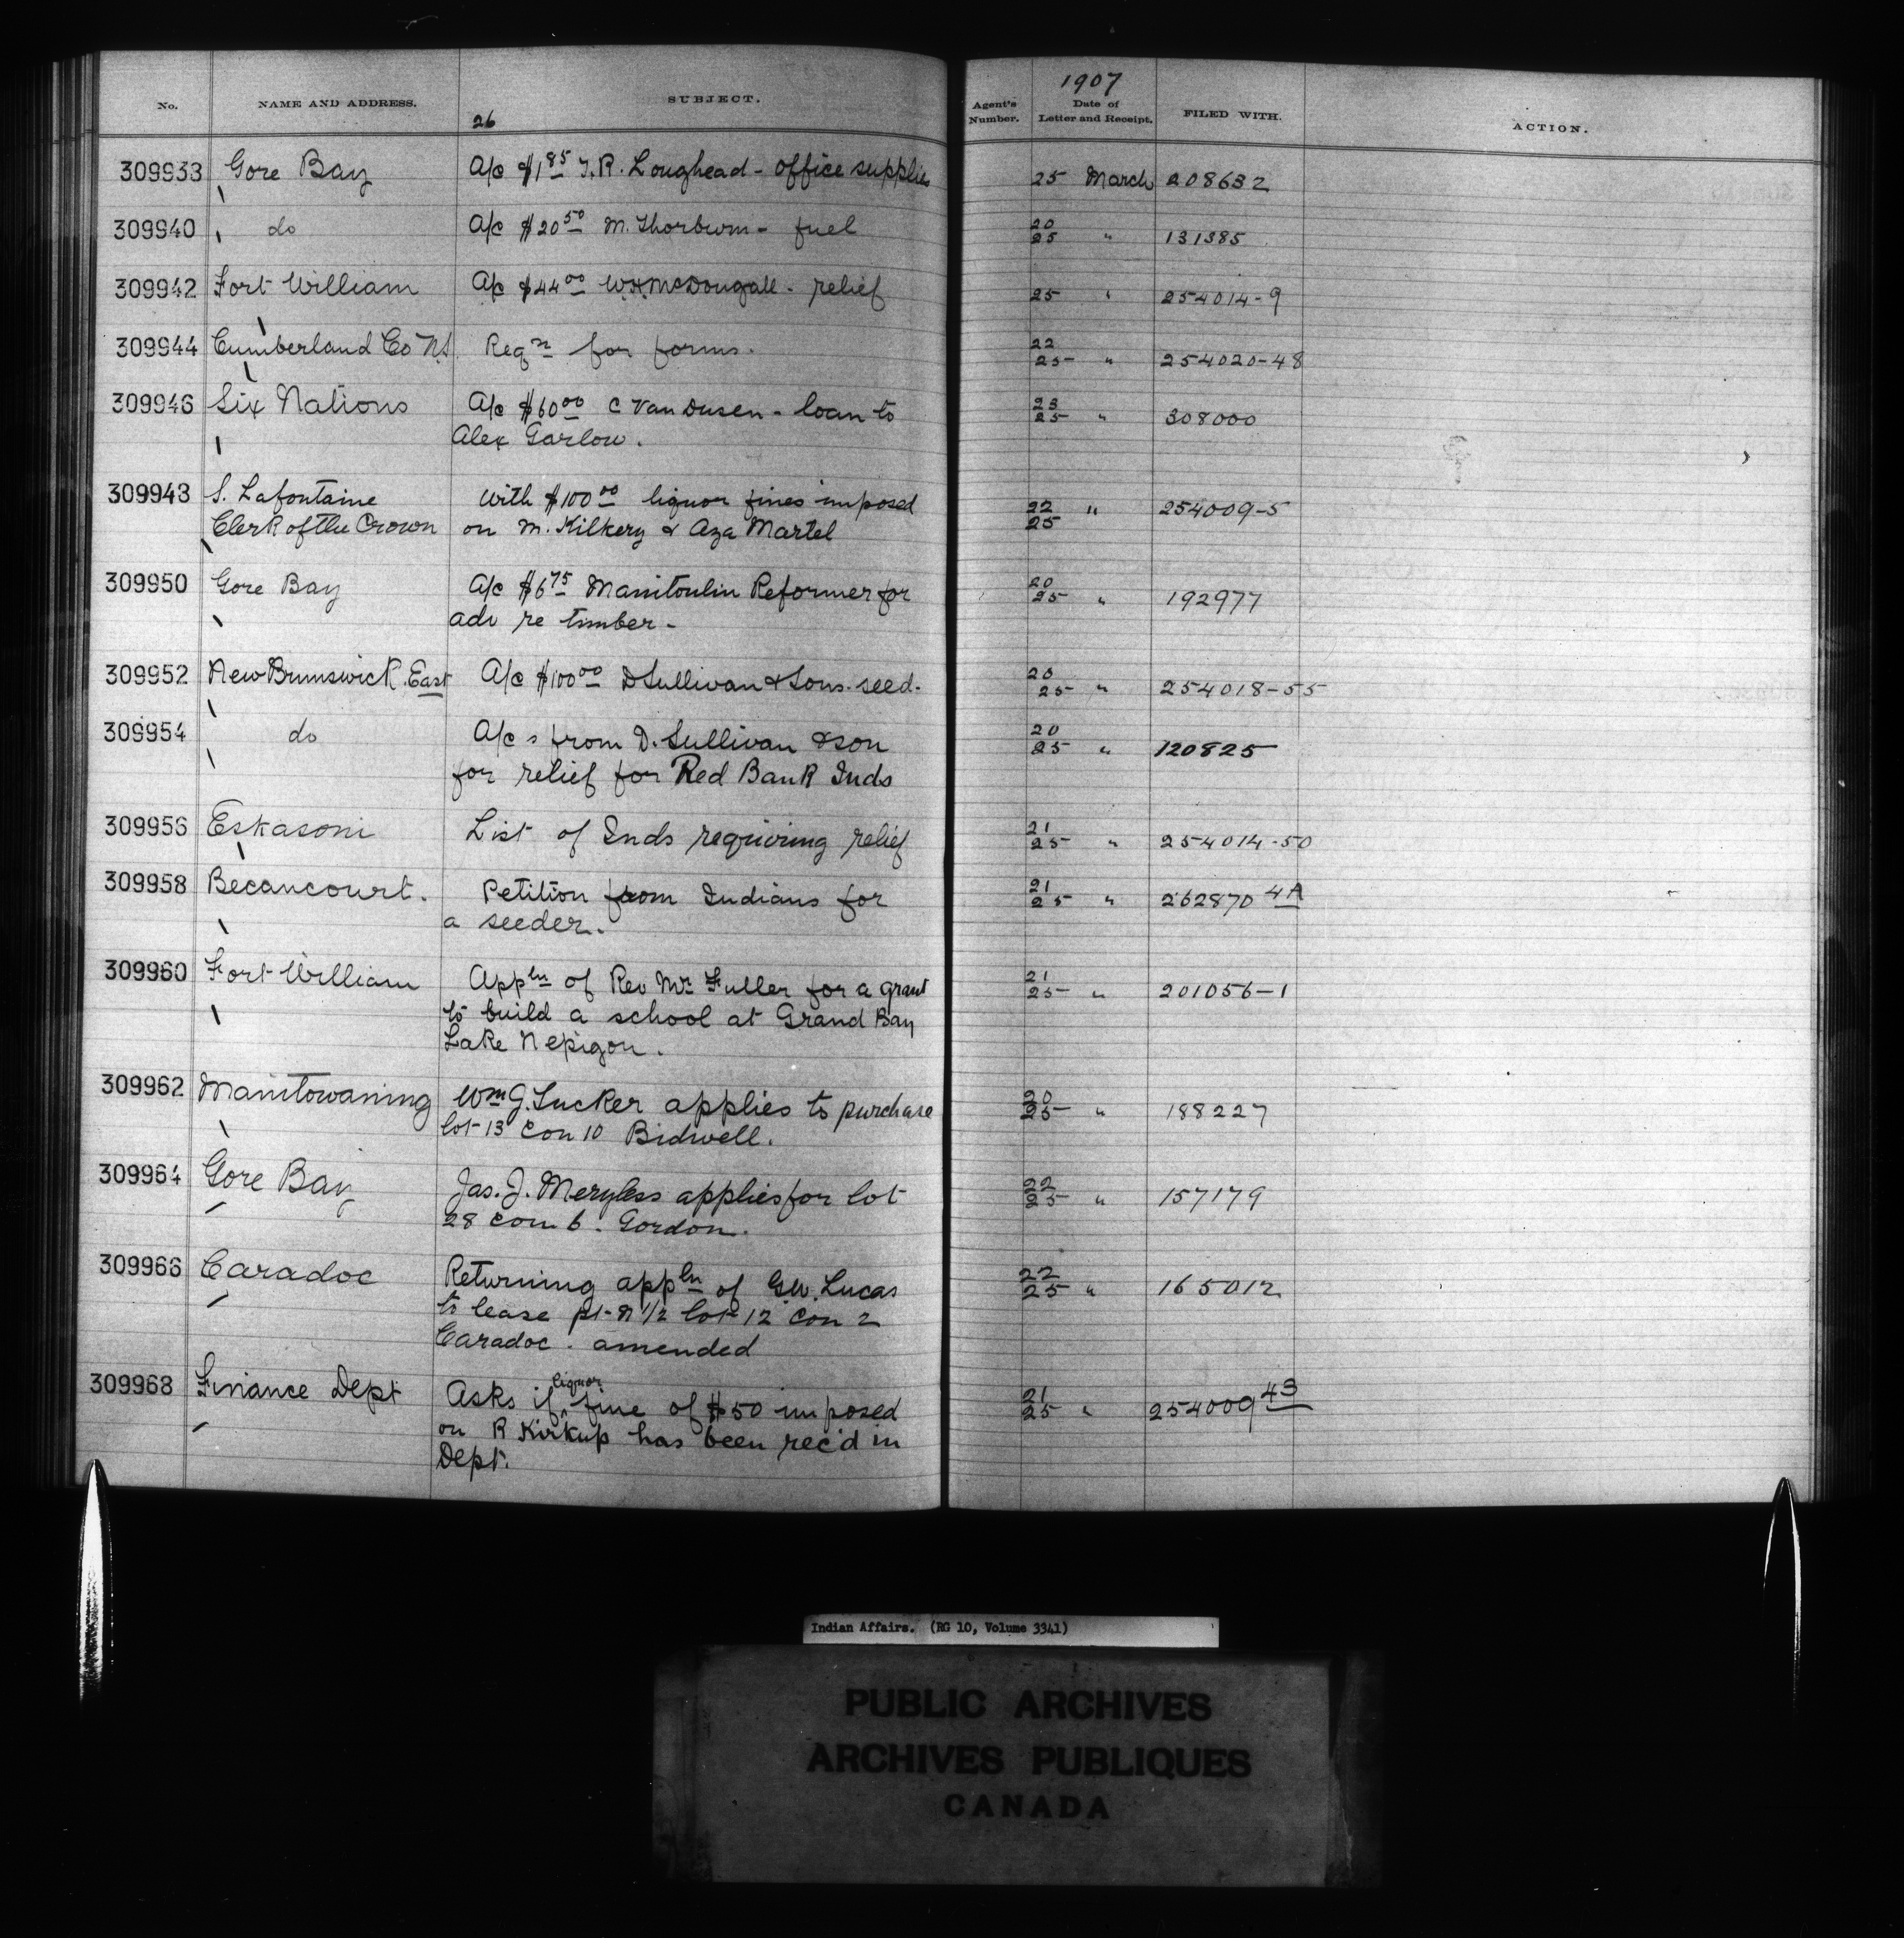 1907
No. NAME AND ADDRESS. SUBJECT. Agent's Number. Date of Letter and Receipt. FILED WITH. ACTION.
26
309938 Gore Bay A/c $1 85 T.R. Loughead - office supplies 25 March 208632
309940 do A/c $20 50 M. Thorburn - fuel 20 25 " 131385
309942 Fort William A/c $44 00 W.H. McDougall - relief 25 " 254014-9
309944 Cumberland Co N.S. Reqn for forms. 22 25 " 254020-48
309946 Six Nations A/c $60 00 C Van Dusen - loan to 23 25 " 308000
Alex Garlow.
309948 S. Lafontaine With $100 00 liquor fines imposed 22 25 " 254009-5
Clerk of the Crown on M. Kilkery & Aza Martel
309950 Gore Bay A/c $6 75 Manitoulin Reformer for 20 25 " 192977
adv re timber -
309952 New Brunswick. East A/c $100 00 D Sullivan & Sons. seed. 20 25 " 254018-55
309954 do A/cs from D. Sullivan & son 20 25 " 120825
for relief for Red Bank Inds
309956 Eskasoni List of Inds requiring relief 21 25 " 254014-50
309958 Becancourt. Petition from Indians for 21 25 " 262870 4A
a seeder.
309960 Fort William Appln of Rev Mr Fuller for a grant 21 25 " 201056-1
to build a school at Grand Bay
Lake Nepigon.
309962 Manitowaning Wm G. Tucker applies to purchase 20 25 " 188227
lot 13 Con 10 Bidwell.
309964 Gore Bay Jas. J. Meryless applies for lot 22 25 " 157179
28 con 6. Gordon.
309966 Caradoc Returning appln of G.W. Lucas 22 25 " 165012
to lease pt-N 1/2 lot 12 Con 2
Caradoc. amended
309968 Finance Dept Asks if liquor fine of $50 imposed 21 25 " 254009 43
on R Kirkup has been rec'd in
Dept.
Indian Affairs. (RG 10, Volume 3341)
PUBLIC ARCHIVES
ARCHIVES PUBLIQUES
CANADA